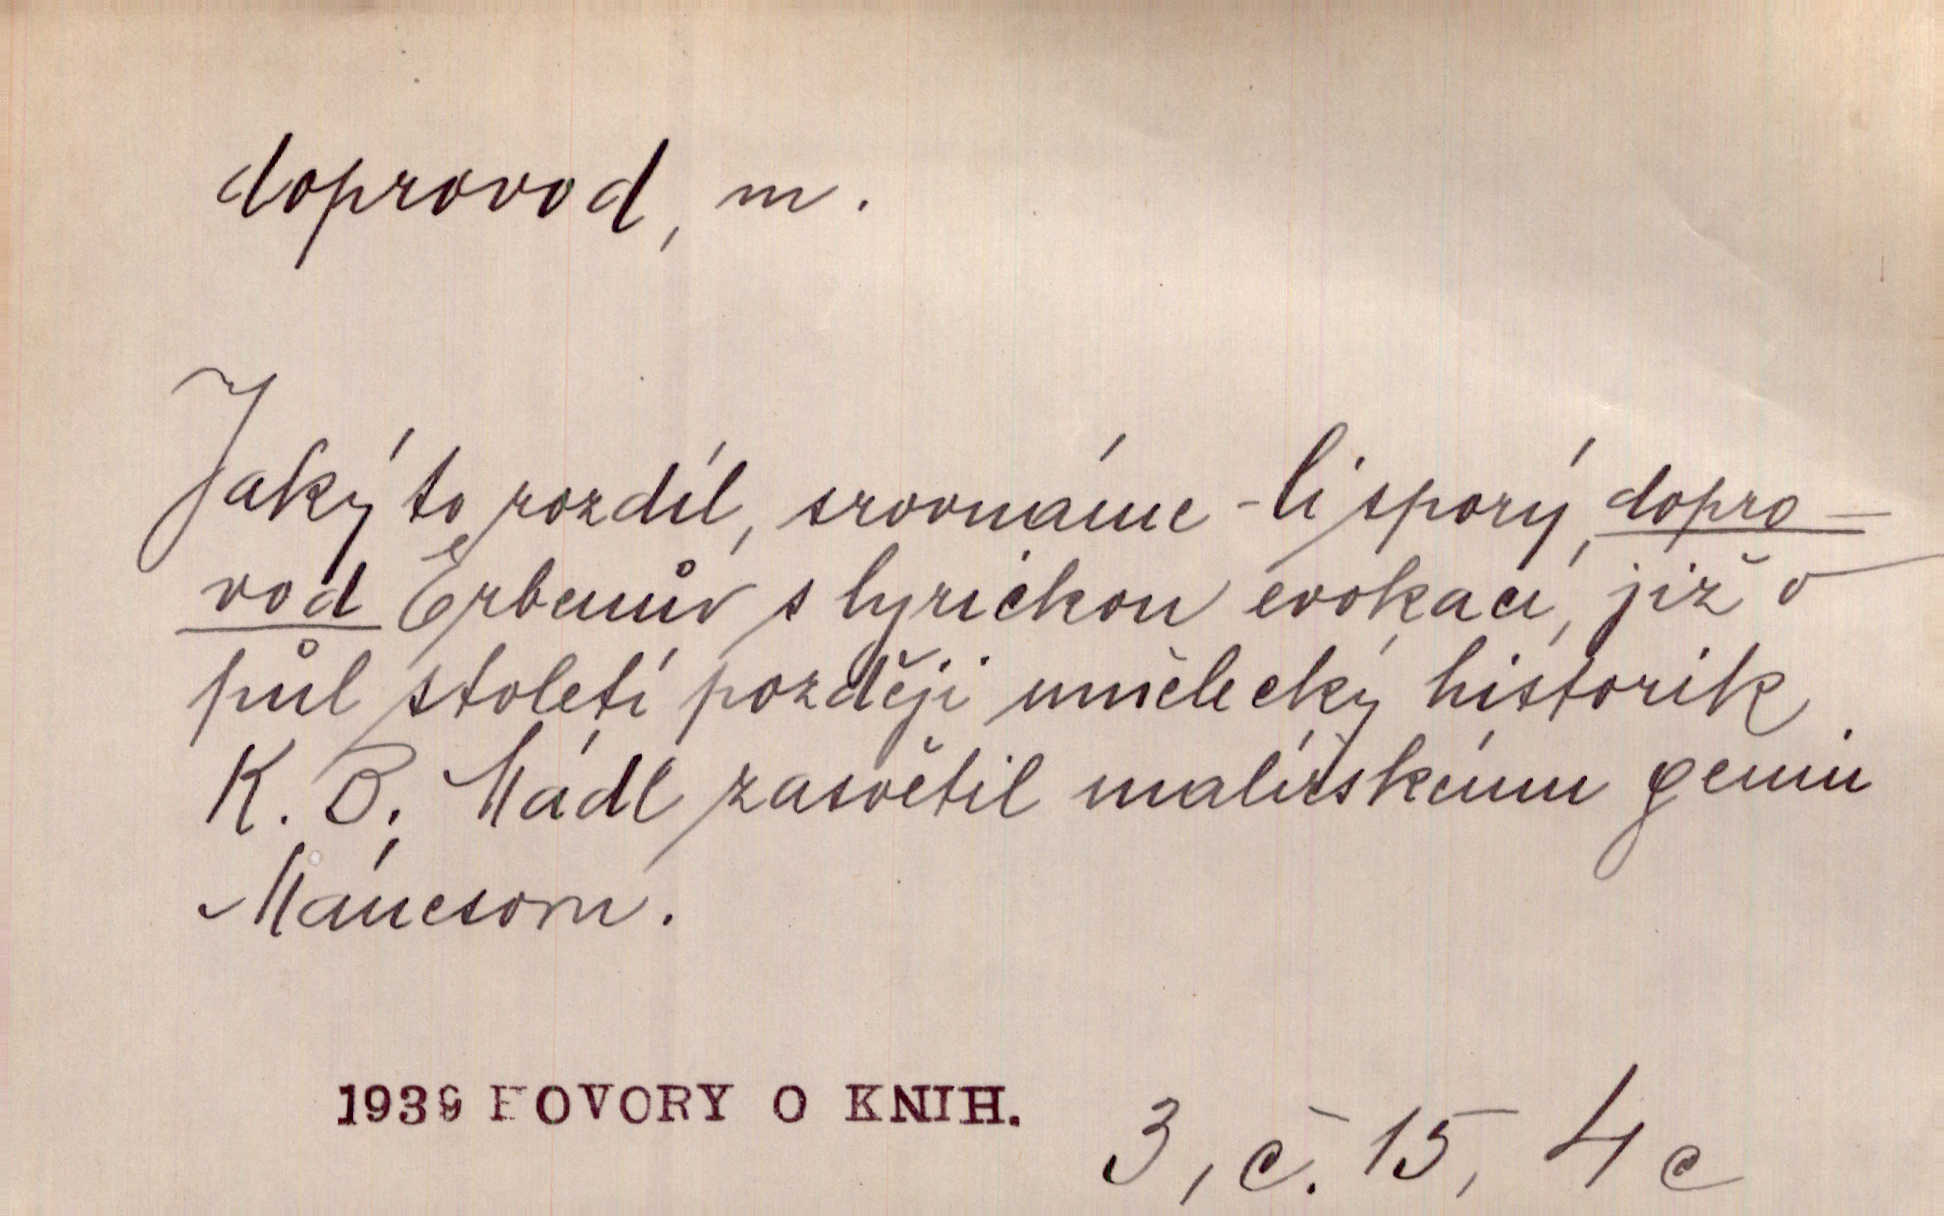 doprovod, m.
Jaký to rozdíl, srovnáme-li sporý dopro-
vod Erbenův s lyrickou evokací, již o
půl století později umělecký historik
K. B. Mádl zasvětil malířskému geniu
Mánesovu.
1939 HOVORY O KNIH.
3, č. 15, 4c